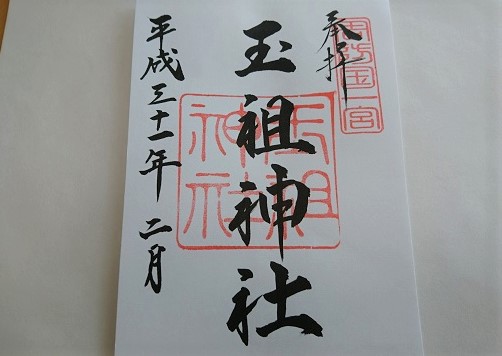 奉拝
周防国一宮
玉祖神社
玉祖神社
平成三十一年 二月